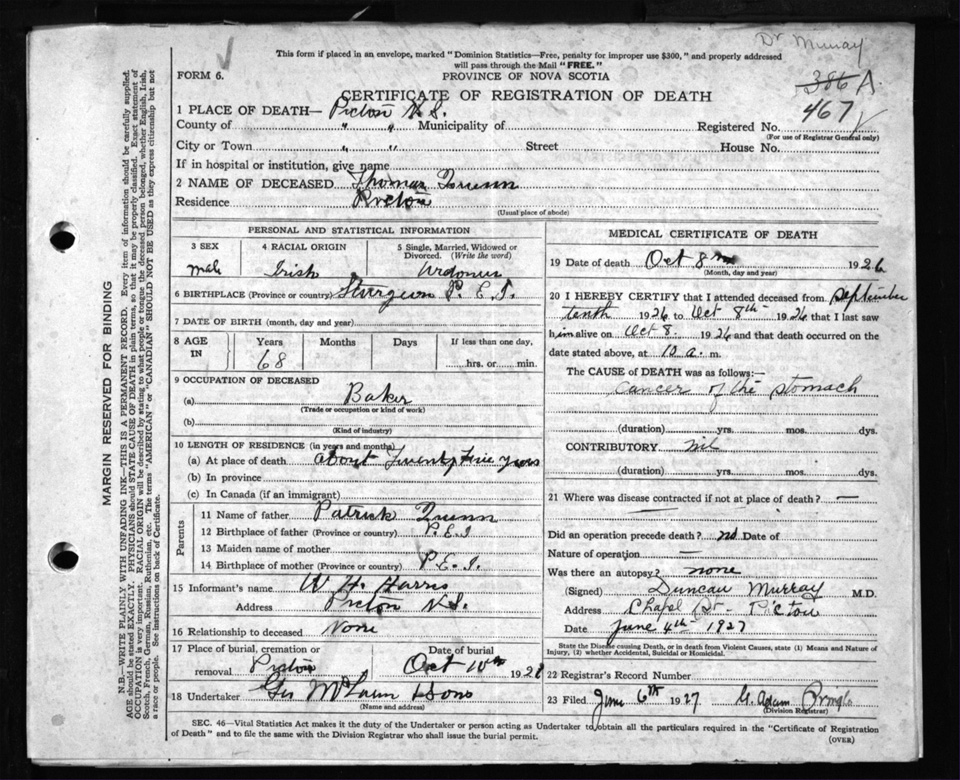 Dr Murray
This form if placed in an envelope, marked "Dominion Statistics—Free, penalty for improper use $300," and properly addressed
will pass through the Mail "FREE."
FORM 6.
PROVINCE OF NOVA SCOTIA
386 A
CERTIFICATE OF REGISTRATION OF DEATH
467
1 PLACE OF DEATH— Pictou N.S.
County of " " Municipality of Registered No.
(For use of Registrar General only)
City or Town " " Street House No.
If in hospital or institution, give name
2 NAME OF DECEASED Thomas Quinn
Residence Pictou
(Usual place of abode)
PERSONAL AND STATISTICAL INFORMATION
3 SEX 4 RACIAL ORIGIN 5 Single, Married, Widowed or Divorced. (Write the word)
male Irish
6 BIRTHPLACE (Province or country) Sturgeon P. E. I.
7 DATE OF BIRTH (month, day and year)
8 AGE IN Years Months Days If less than one day,
68 hrs. or min.
9 OCCUPATION OF DECEASED
(a) Baker
(Trade or occupation or kind of work)
(b)
(Kind of industry)
10 LENGTH OF RESIDENCE (in years and months)
(a) At place of death about Twenty five years
(b) In province
(c) In Canada (if an immigrant)
Parents
11 Name of father Patrick Quinn
12 Birthplace of father (Province or country) P.E.I
13 Maiden name of mother
14 Birthplace of mother (Province or country) P.E.I.
15 Informant's name W. H. Harris
Address Pictou N.S.
16 Relationship to deceased None
17 Place of burial, cremation or removal Pictou
Date of burial Oct 10th 1926
18 Undertaker Geo & Sons
(Name and address)
MEDICAL CERTIFICATE OF DEATH
19 Date of death Oct 8th 1926
(Month, day and year)
20 I HEREBY CERTIFY that I attended deceased from September
tenth 1926 to Oct 8th 1926 that I last saw
him alive on Oct 8. 1926 and that death occurred on the
date stated above, at 10 a. m.
The CAUSE of DEATH was as follows:—
cancer of the stomach
(duration) yrs. mos. dys.
CONTRIBUTORY nil
(duration) yrs. mos. dys.
21 Where was disease contracted if not at place of death? —
Did an operation precede death? no Date of
Nature of operation —
Was there an autopsy? none
(Signed) Duncan Murray M.D.
Address Chapel St- Pictou
Date June 4th 1927
State the Disease causing Death, or in death from Violent Causes, state (1) Means and Nature of
Injury, (2) whether Accidental, Suicidal or Homicidal.
22 Registrar's Record Number
23 Filed June 6th 1927 G. Adam Pringle
(Division Registrar)
SEC. 46—Vital Statistics Act makes it the duty of the Undertaker or person acting as Undertaker to obtain all the particulars required in the "Certificate of Registration
of Death" and to file the same with the Division Registrar who shall issue the burial permit.
(OVER)
MARGIN RESERVED FOR BINDING
N.B.—WRITE PLAINLY WITH UNFADING INK—THIS IS A PERMANENT RECORD. Every item of information should be carefully supplied.
AGE should be stated EXACTLY. PHYSICIANS should STATE CAUSE OF DEATH in plain terms, so that it may be properly classified. Exact statement of
OCCUPATION is very important. RACIAL ORIGIN will be described by stating to what people or tongue the deceased person belonged, whether English, Irish,
Scotch, French, German, Russian, Ruthenian, etc. The terms "AMERICAN" or "CANADIAN" SHOULD NOT BE USED as they express citizenship but not
a race or people. See instructions on back of Certificate.